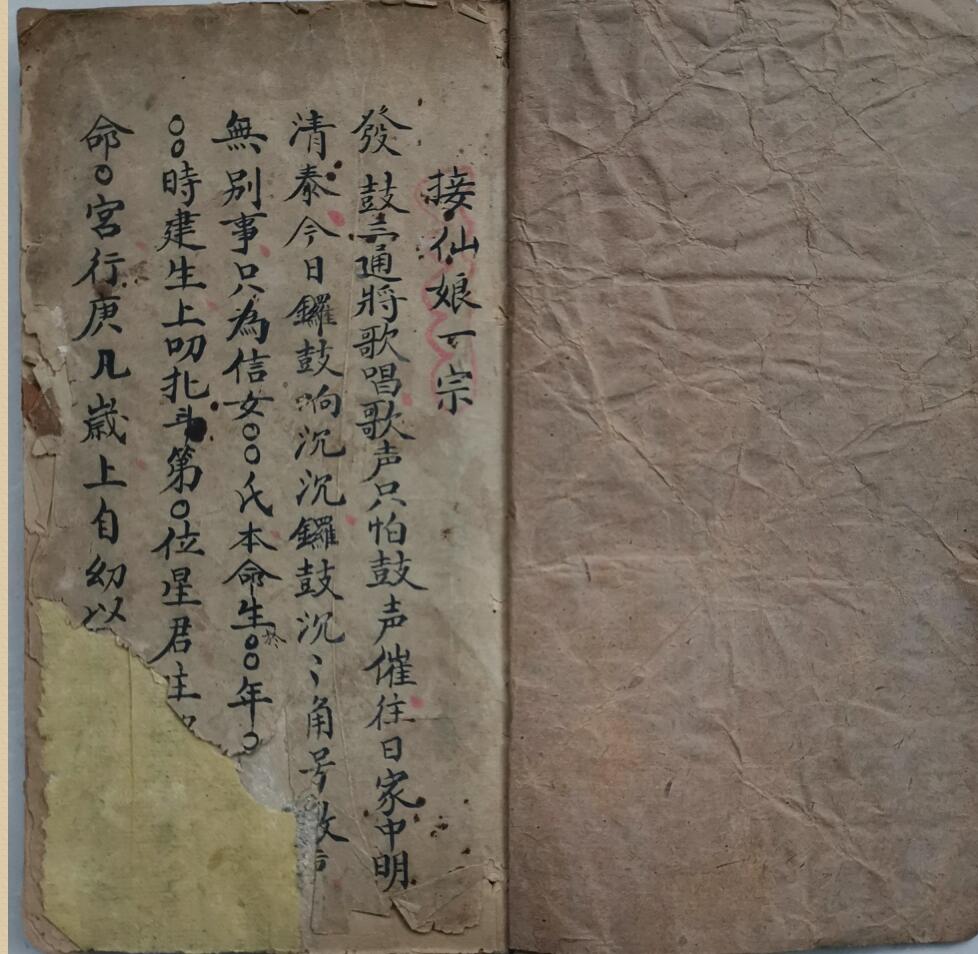 接仙娘一宗
發鼓三通將歌唱歌声只怕鼓声催往日家中明
清泰今日鑼鼓响沉沉鑼鼓沉〻角号
無别事只為信女〇〇氏本命生於〇〇年〇
〇〇時建生上叨北斗第〇位星君主
命〇宮行庚几歲上自幼以